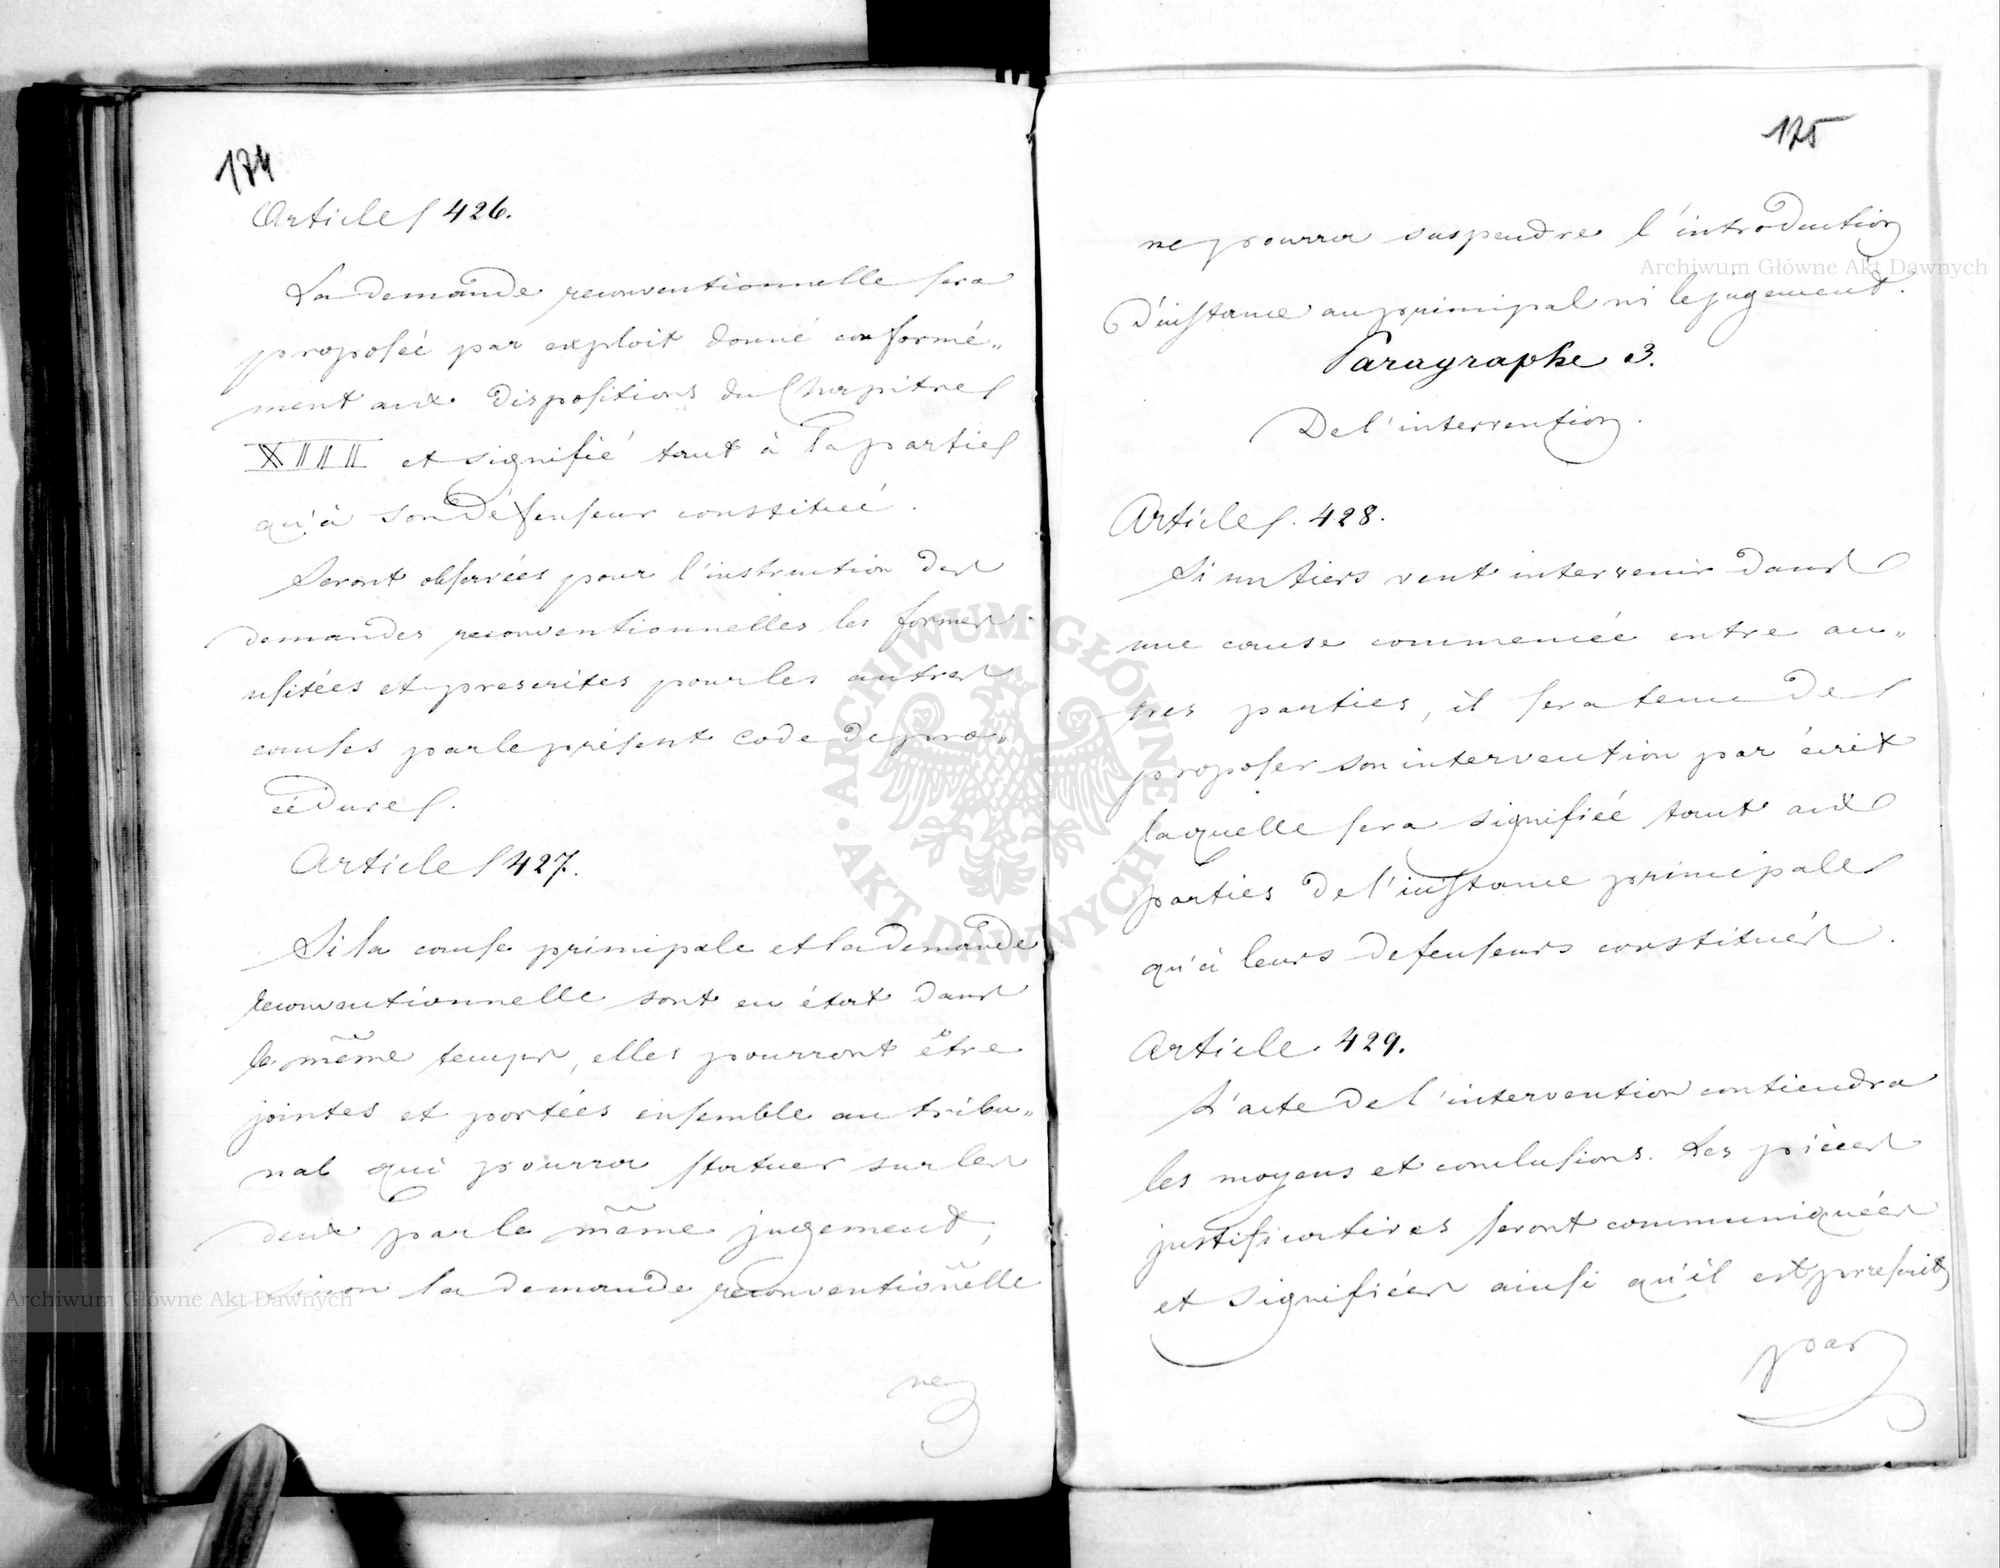 174
Article 426.
La demande reconventionnelle sera
proposée par exploit donné conformé„
ment aux dispositions du Chapitre
XIII et signifié tant à la partie
qu'à son défenseur constitué.
Seront observées pour l'instruction des
demandes reconventionnelles les formes
usitées et prescrites pour les autres
causes par le présent code de pro„
cédure.
Article 427.
Si la cause principale et la demande
reconventionnelle sont en état dans
le même temps, elles pourront être
jointes et portées ensemble au tribu„
nal qui pourra statuer sur les
deux par le même jugement,
sinon la demande reconventioñelle
ne
175
ne pourra suspendre l'introduction
d'instance au principal ni le jugement.
Paragraphe 3.
De l'intervention.
Article. 428.
Si un tiers veut intervenir dans
une cause commencée entre au„
tres parties, il sera tenu de
proposer son intervention par écrit
laquelle sera signifiée tant aux
parties de l'instance principale
qu'à leurs defenseurs constitués.
Article 429.
L'acte de l'intervention contiendra
les moyens et conclusions. Les pièces
justificatives seront communiquées
et signifiées ainsi qu'il est prescrit
par
Archiwum Główne Akt Dawnych
Archiwum Główne Akt Dawnych
ARCHIWUM GŁÓWNE AKT DAWNYCH